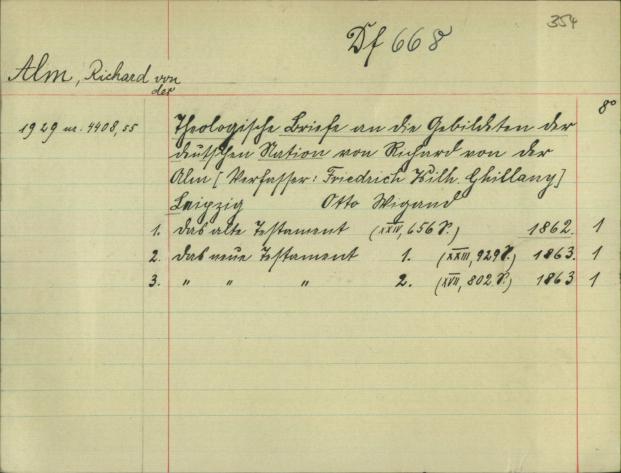 354
Df 668
Alm, Richard von der
8°
1929 nr. 4408, 55
Theologische Briefe an die Gebildeten der
deutschen Nation von Richard von der
Alm [Verfasser: Friedrich Wilh. Ghillany]
Leipzig Otto Wigand
1. Das alte Testament (XXIV, 656 S.) 1862. 1
2. Das neue Testament 1. (XXIII, 929 S.) 1863. 1
3. " " " 2. (XVII, 802 S.) 1863 1